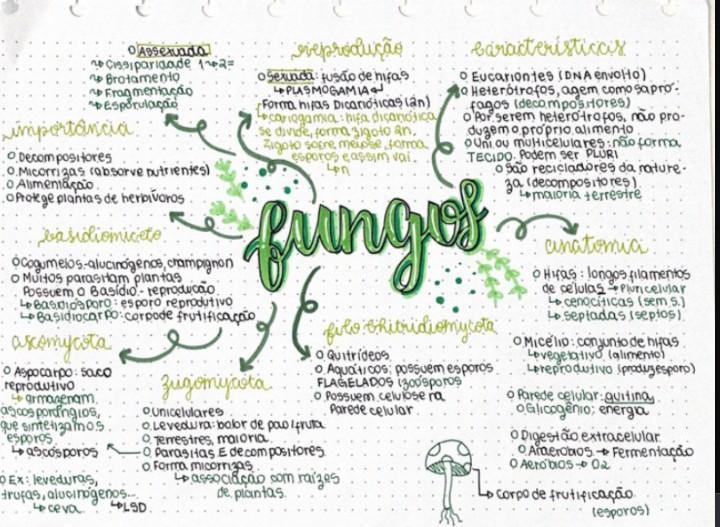 fungos
reprodução
O Assexuada
↳ Cissiparidade 1→2=
↳ Brotamento
↳ Fragmentação
↳ Esporulação
O Sexuada: fusão de hifas
↳ PLASMOGAMIA
Forma hifas Dicarióticas (2n)
↳ cariogamia: hifa dicariótica
se divide, forma zigoto 2n.
Zigoto sofre meiose, forma
esporos e assim vai.
↳ n
características
O Eucariontes (DNA envolto)
O Heterótrofos, agem como sapró-
fagos (decompositores)
O Por serem heterótrofos, não pro-
duzem o próprio alimento
O Uni ou multicelulares: não forma
TECIDO. Podem ser PLURI
O São recicladores da nature-
za (decompositores)
↳ maioria terrestre
importância
O Decompositores
O Micorrizas (absorve nutrientes)
O Alimentação
O Protege plantas de herbívoros
basidiomiceto
O Cogumelos-alucinógenos, champignon
O Muitos parasitam plantas
Possuem o Basídio - reprodução
↳ Basidiósporo: esporo reprodutivo
↳ Basidiocarpo: corpo de frutificação
anatomia
O Hifas: longos filamentos
de células → Pluricelular
↳ cenocíticas (sem s.)
↳ septadas (septos)
O Micélio: conjunto de hifas
↳ vegetativo (alimento)
↳ reprodutivo (produz esporo)
O Parede celular: quitina
O Glicogênio: energia
O Digestão extracelular
O Anaeróbios → Fermentação
O Aeróbios → O2
ascomycota
O Ascocarpo: saco
reprodutivo
↳ armazenam
ascosporângios,
que sintetizam os
esporos
↳ ascósporos
O Ex: leveduras,
trufas, alucinógenos...
↳ ceva ↳ LSD
zygomycota
O Unicelulares
O Levedura: bolor de pão/fruta
O Terrestres, maioria
O Parasitas E decompositores
O Forma micorrizas
↳ associação com raízes
de plantas.
filo chitridiomycota
O Quitrídeos
O Aquáticos: possuem esporos
FLAGELADOS (zoósporos
O Possuem celulose na
Parede celular
↳ Corpo de frutificação
(esporos)